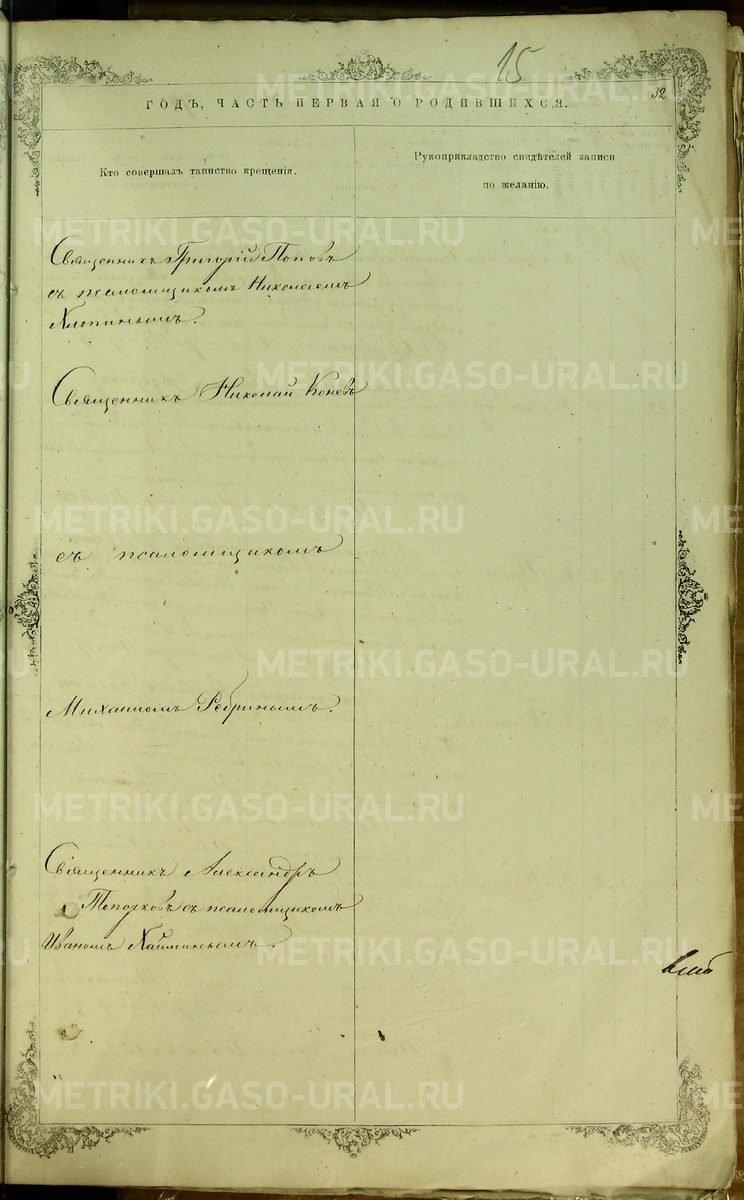 15
52
ГОДЪ, ЧАСТЬ ПЕРВАЯ О РОДИВШИХСЯ.
Кто совершалъ таинство крещенія.
Рукоприкладство свидѣтелей записи
по желанію.
Священникъ Григорій Поповъ
съ псаломщикомъ Николаемъ
Хлопинымъ.
Священникъ Николай Коневъ
съ псаломщикомъ
Михаиломъ Ребринымъ.
Священникъ Александръ
Топорковъ съ псаломщикомъ
Иваномъ Хайминымъ.
METRIKI.GASO-URAL.RU